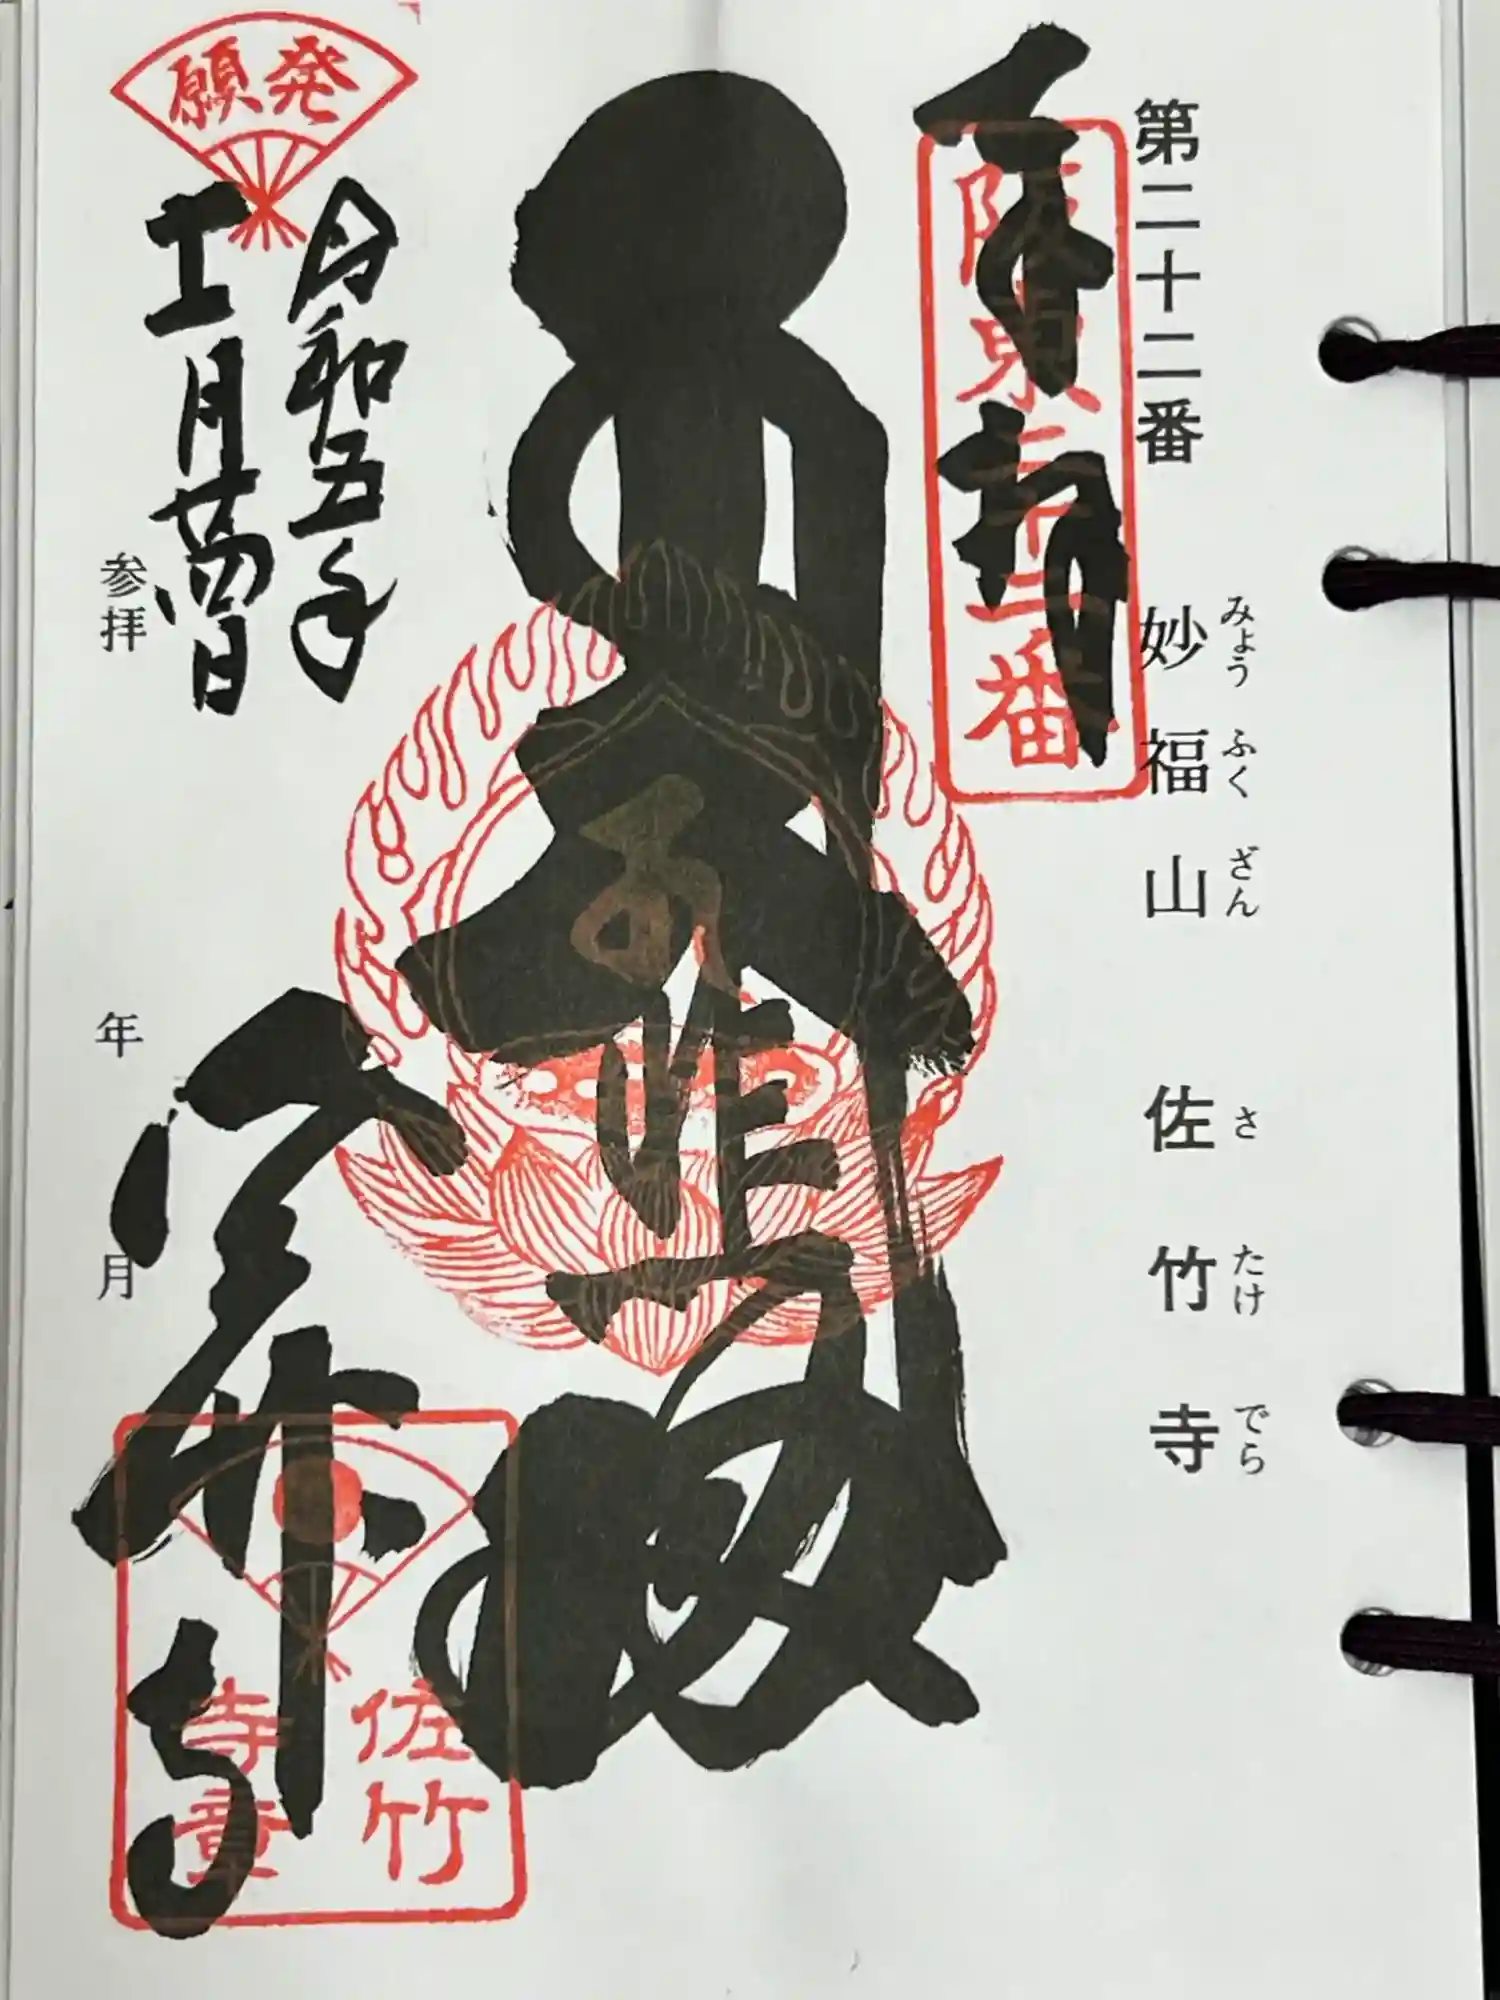 第二十二番 妙福山 佐竹寺
みょうふくざん さたけでら
奉拝
阪東二十二番
大悲殿
発願
令和五年
十一月廿四日
参拝
年 月
佐竹寺
佐竹
寺章